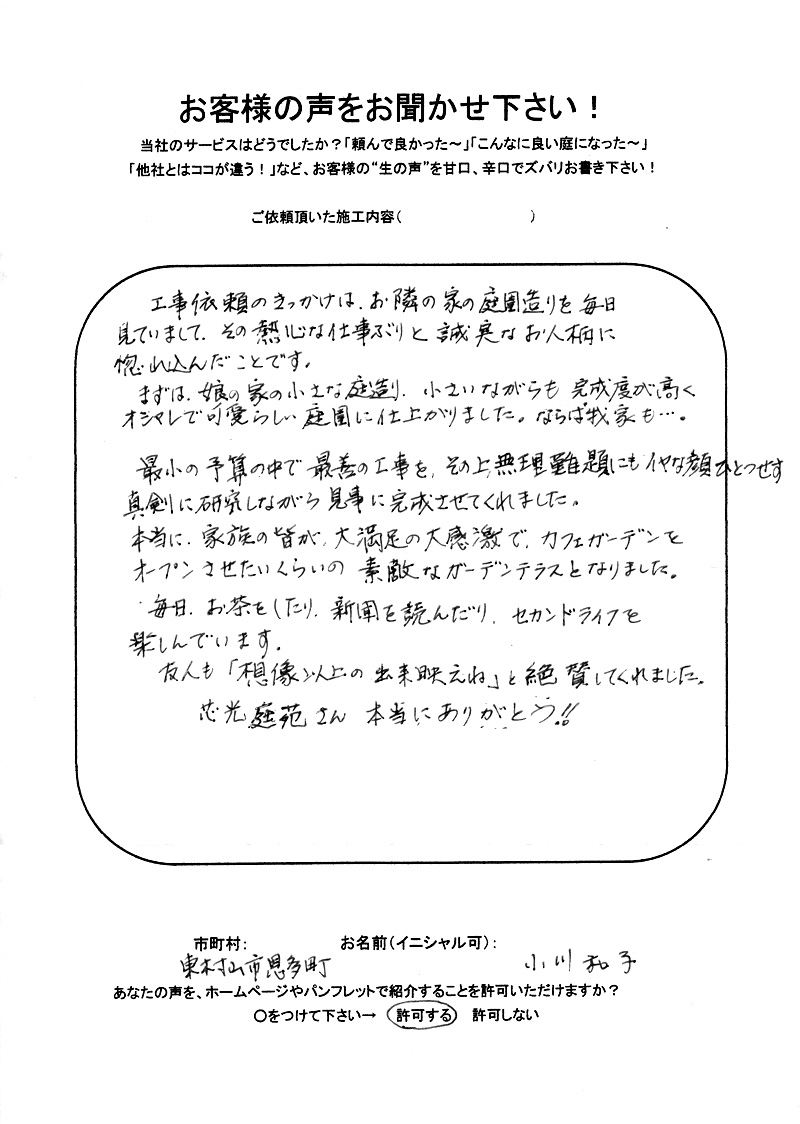 お客様の声をお聞かせ下さい！
当社のサービスはどうでしたか？「頼んで良かった～」「こんなに良い庭になった～」
「他社とはココが違う！」など、お客様の“生の声”を甘口、辛口でズバリお書き下さい！
ご依頼頂いた施工内容（　　　　　　　）
工事依頼のきっかけは、お隣の家の庭園造りを毎日
見ていまして、その熱心な仕事ぶりと誠実なお人柄に
惚れ込んだことです。
まずは、娘の家の小さな庭造り、小さいながらも完成度が高く
オシャレで可愛らしい庭園に仕上がりました。ならば我家も…。
最小の予算の中で最善の工事を、その上無理難題にもイヤな顔ひとつせず
真剣に研究しながら見事に完成させてくれました。
本当に、家族の皆が、大満足の大感激で、カフェガーデンを
オープンさせたいくらいの素敵なガーデンテラスとなりました。
毎日、お茶をしたり、新聞を読んだり、セカンドライフを
楽しんでいます。
友人も「想像以上の出来映えね」と絶賛してくれました。
芯光庭苑さん 本当にありがとう!!
市町村：　お名前（イニシャル可）：
東村山市恩多町　小川和子
あなたの声を、ホームページやパンフレットで紹介することを許可いただけますか？
〇をつけて下さい→　許可する　許可しない